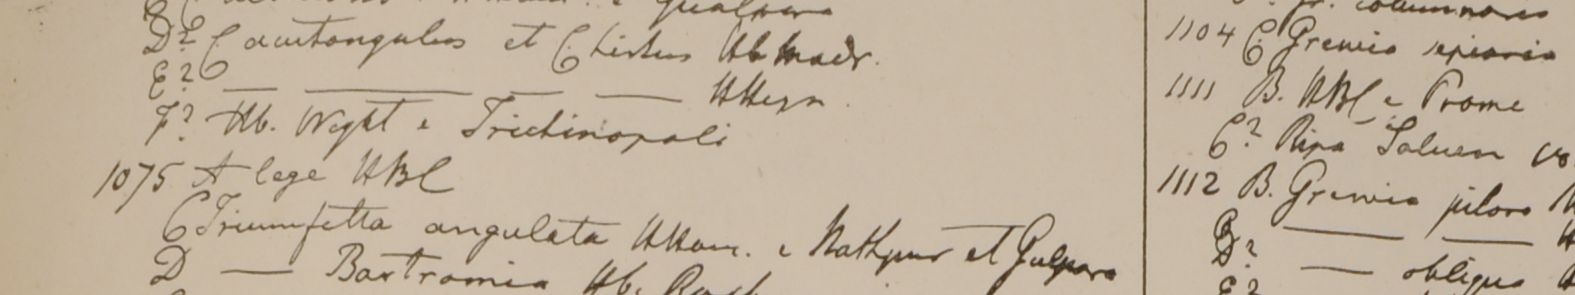 D? C acutangulus et C. hirtus Hb Madr.
E? — — — — HHeyn
F? Hb. Wight e Trichinopoli
1075 A lege HBC
C Triumfetta angulata HHam. e Nathpur et Gulpara
D — Bartramia Hb. Roxb
columnaris
1104 C Grewia sepiaria
1111 B. HBC e Prome
C? Ripa Saluen
1112 B. Grewia pilosa
D? — obliqua
E?